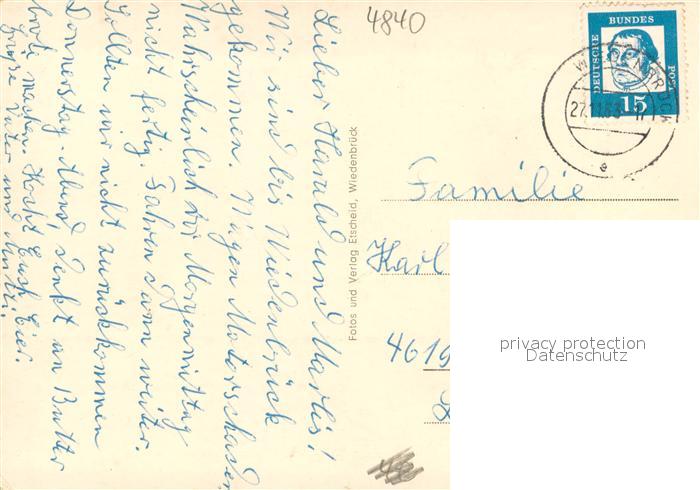 4840
Lieber Harald und Marlis!
Wir sind bis Wiedenbrück
gekommen. Wagen Motorschaden,
Wahrscheinlich bis Morgenmittag
nicht fertig. Fahren dann weiter.
Sollten wir nicht zurückkommen
Donnerstag-Abend denkt an Butter
brote machen. Kocht Euch Eier.
Grüße Vater und Mutti.
Fotos und Verlag Etscheid, Wiedenbrück
DEUTSCHE BUNDES POST
15
WIEDENBRÜCK
27.11.63
e
Familie
Karl
4619
privacy protection
Datenschutz